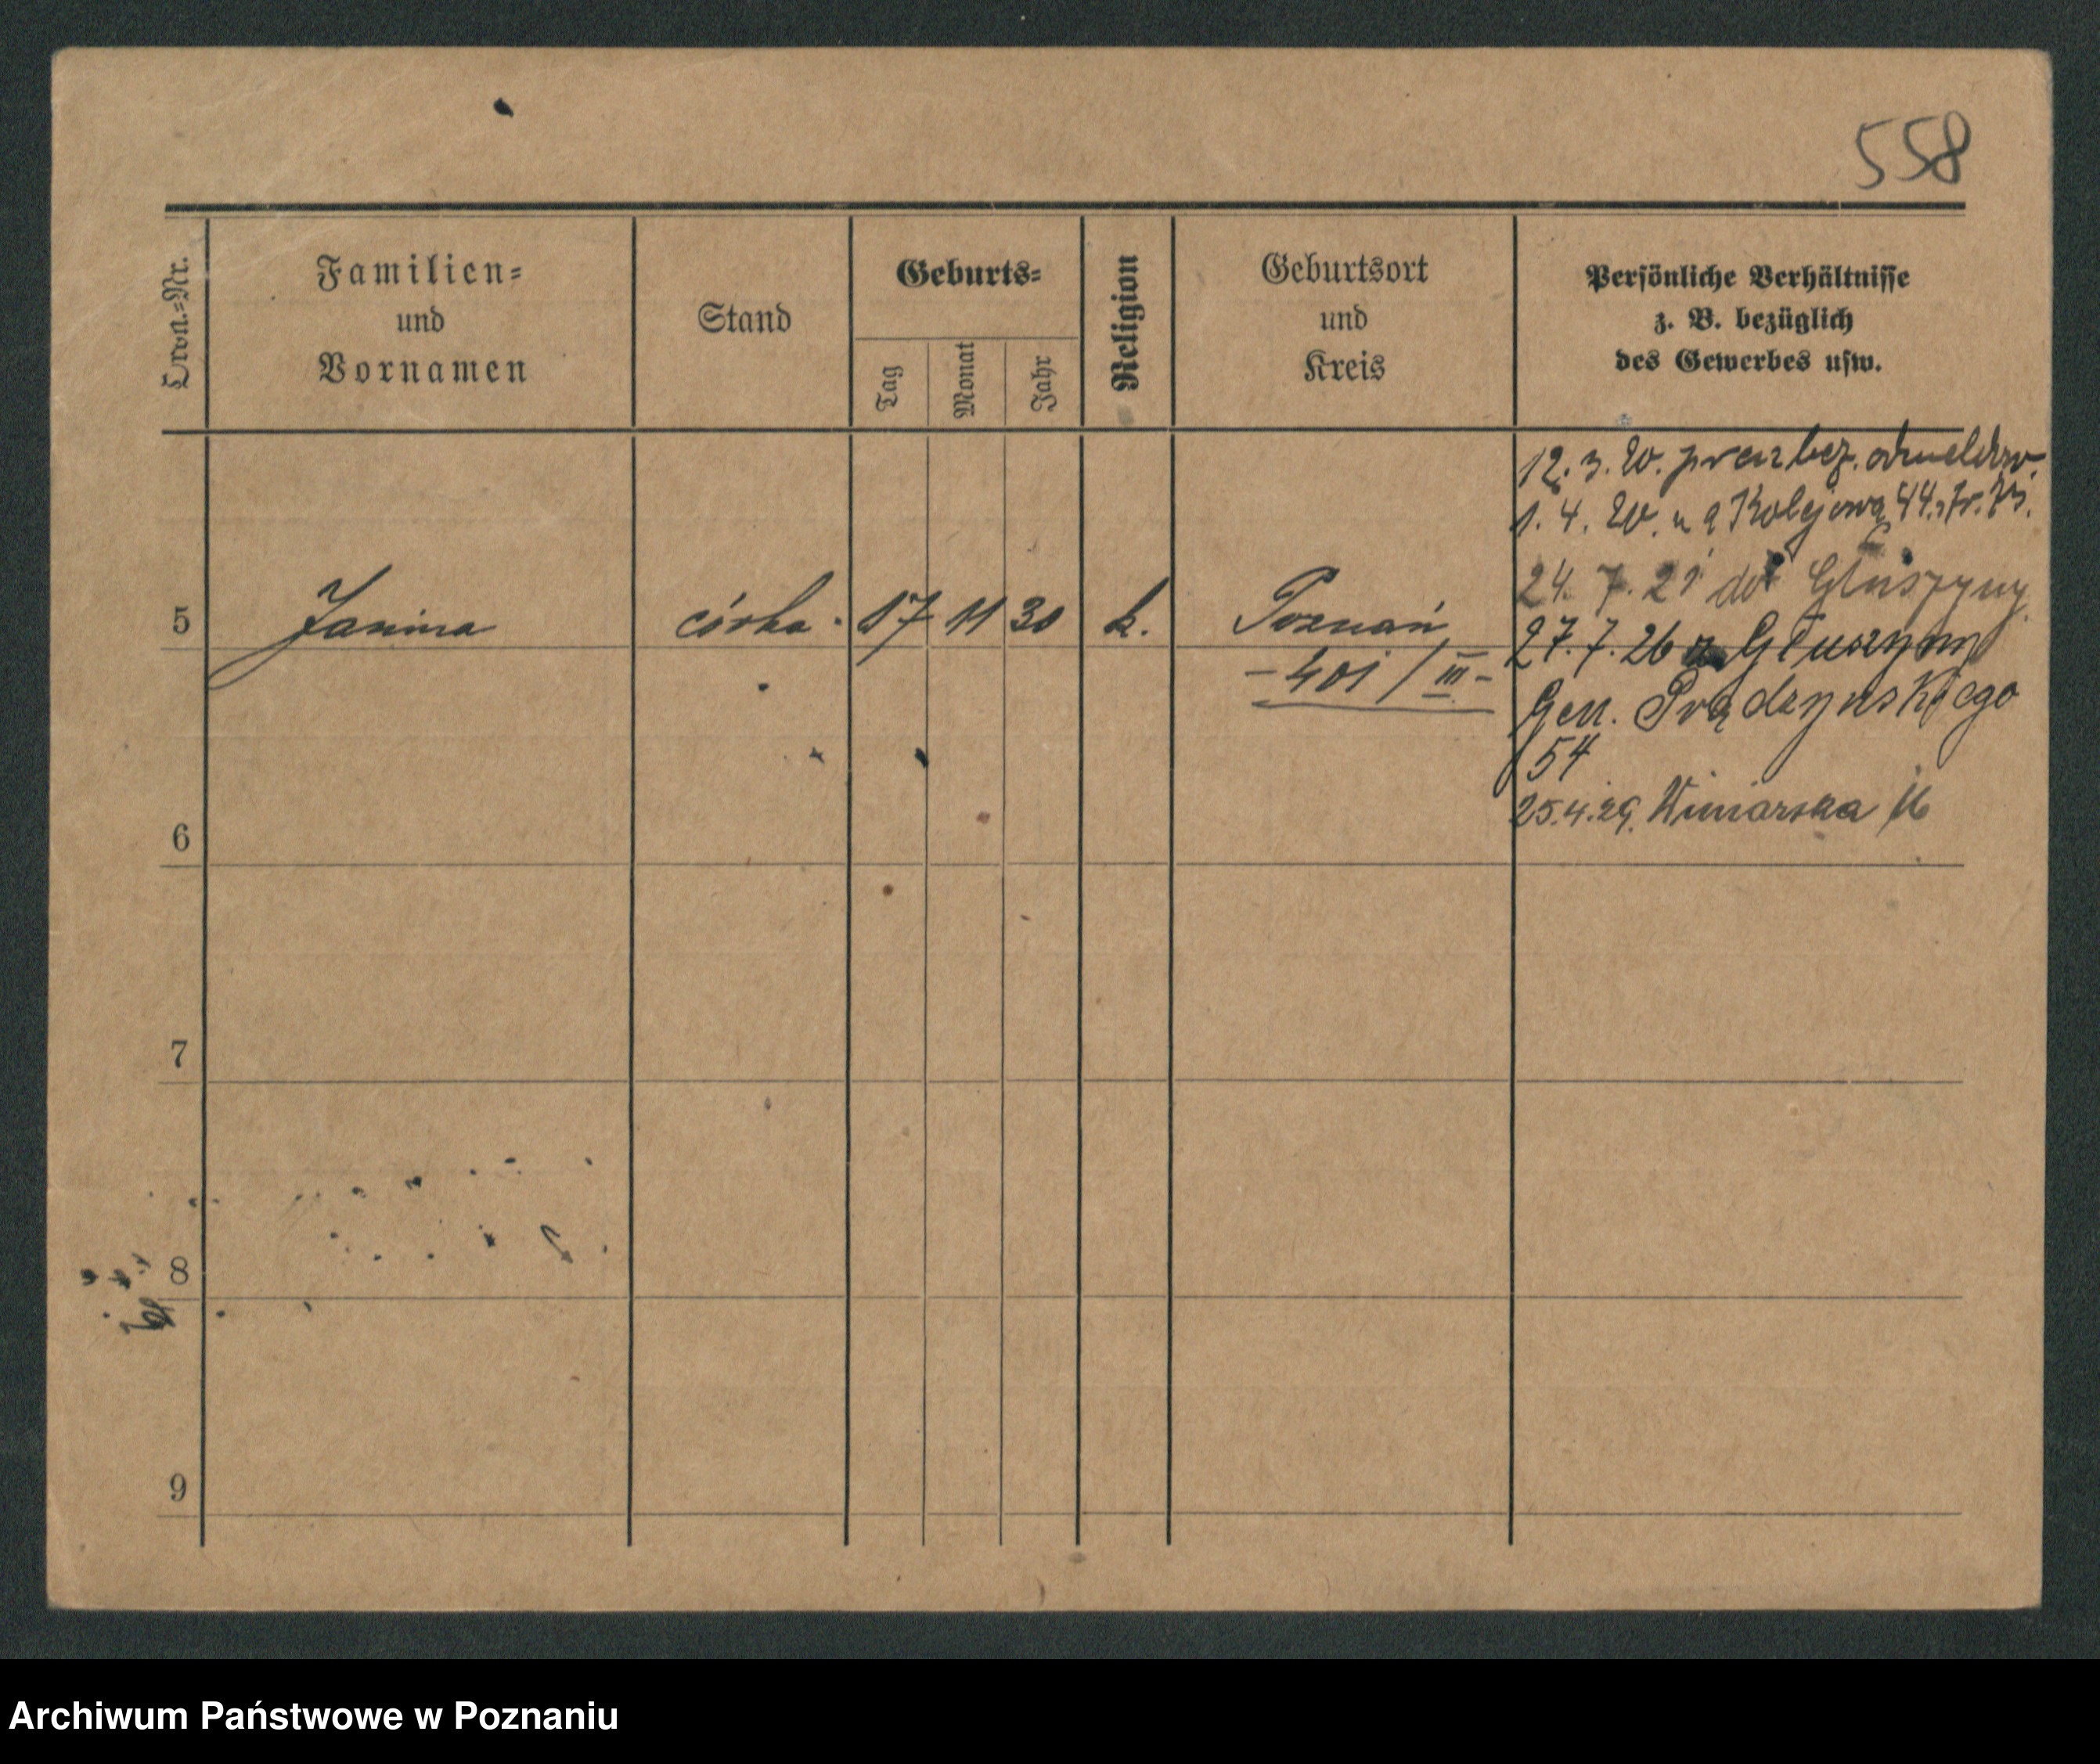 558
Lwn.-Nr.
Familien-
und
Vornamen
Stand
Geburts-
Tag
Monat
Jahr
Religion
Geburtsort
und
Kreis
Persönliche Verhältnisse
z. B. bezüglich
des Gewerbes usw.
12. 3. 20. bez.
1. 4. 20. Kolejowa 44.
24. 7. 21 do Głuszyny
5 Janina córka 17 11 30 k. Poznań
27. 7. 26 z Głuszyny
- 401 / III -
Gen. Prądzyńskiego
54
25.4.29. Winiarska 16
6
7
8
9
Archiwum Państwowe w Poznaniu